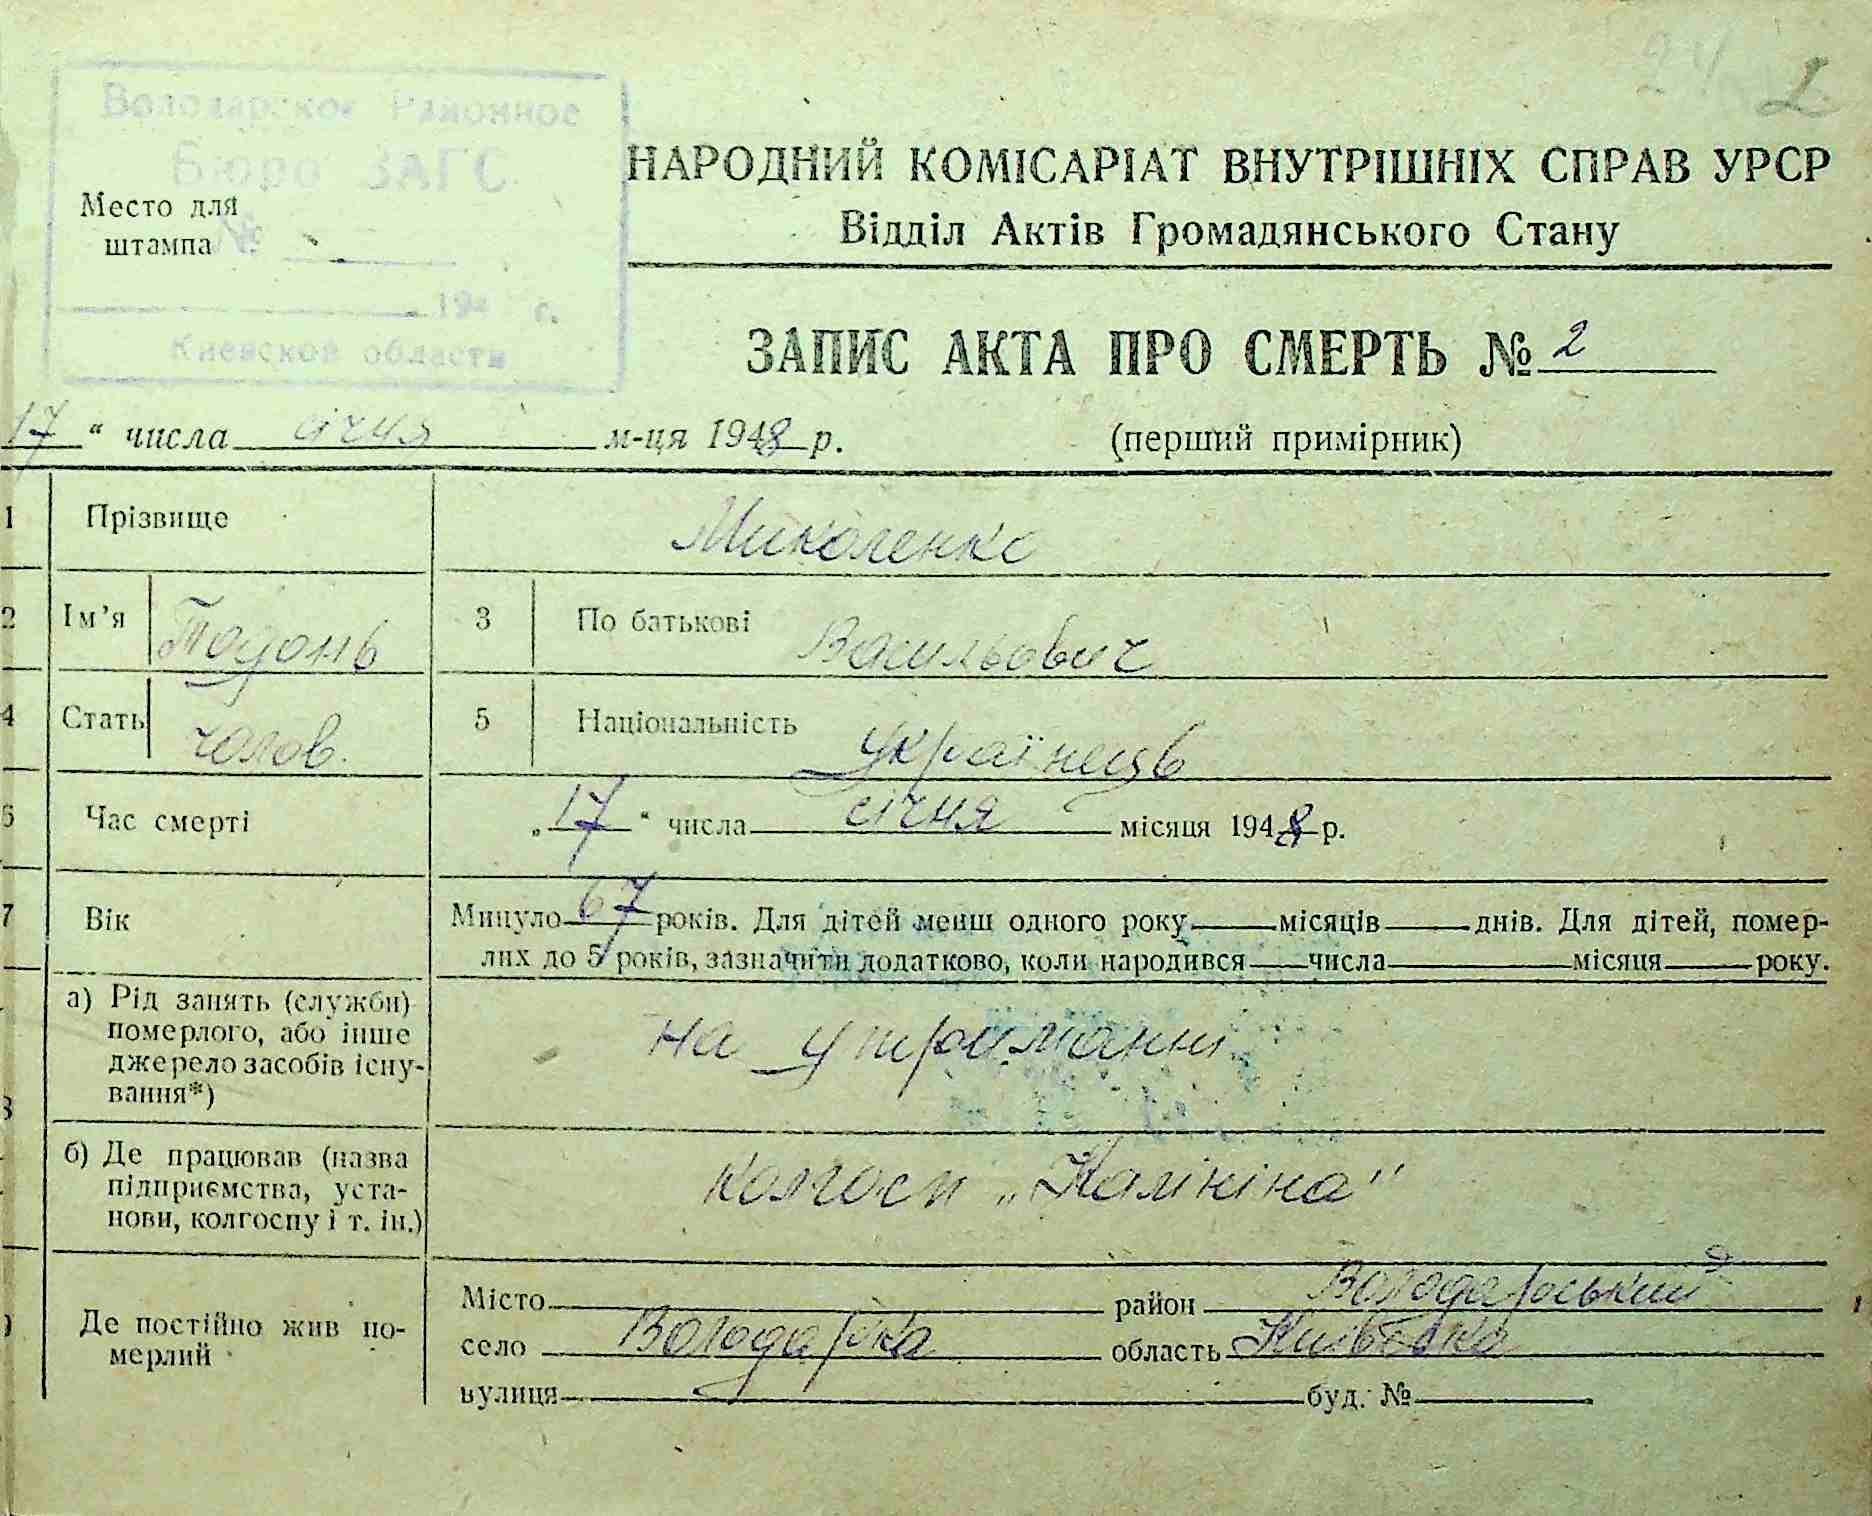 24 2
Володарское Районное
Бюро ЗАГС
Место для
штампа
№
194 г.
Киевской области
НАРОДНИЙ КОМІСАРІАТ ВНУТРІШНІХ СПРАВ УРСР
Відділ Актів Громадянського Стану
ЗАПИС АКТА ПРО СМЕРТЬ № 2
17 " числа січня м-ця 1948 р. (перший примірник)
1 Прізвище Миколенко
2 Ім'я 3 По батькові Васильович
4 Стать чолов. 5 Національність українець
6 Час смерті „17" числа січня місяця 1948 р.
7 Вік Минуло 67 років. Для дітей менш одного року місяців днів. Для дітей, помер-
лих до 5 років, зазначити додатково, коли народився числа місяця року.
а) Рід занять (служби)
померлого, або інше
джерело засобів існу-
вання*)
на утриманні
8
б) Де працював (назва
підприємства, уста-
нови, колгоспу і т. ін.)
колгосп „Калініна"
Місто район Володарський
Де постійно жив по-
мерлий
село Володарка область Київська
вулиця буд. №